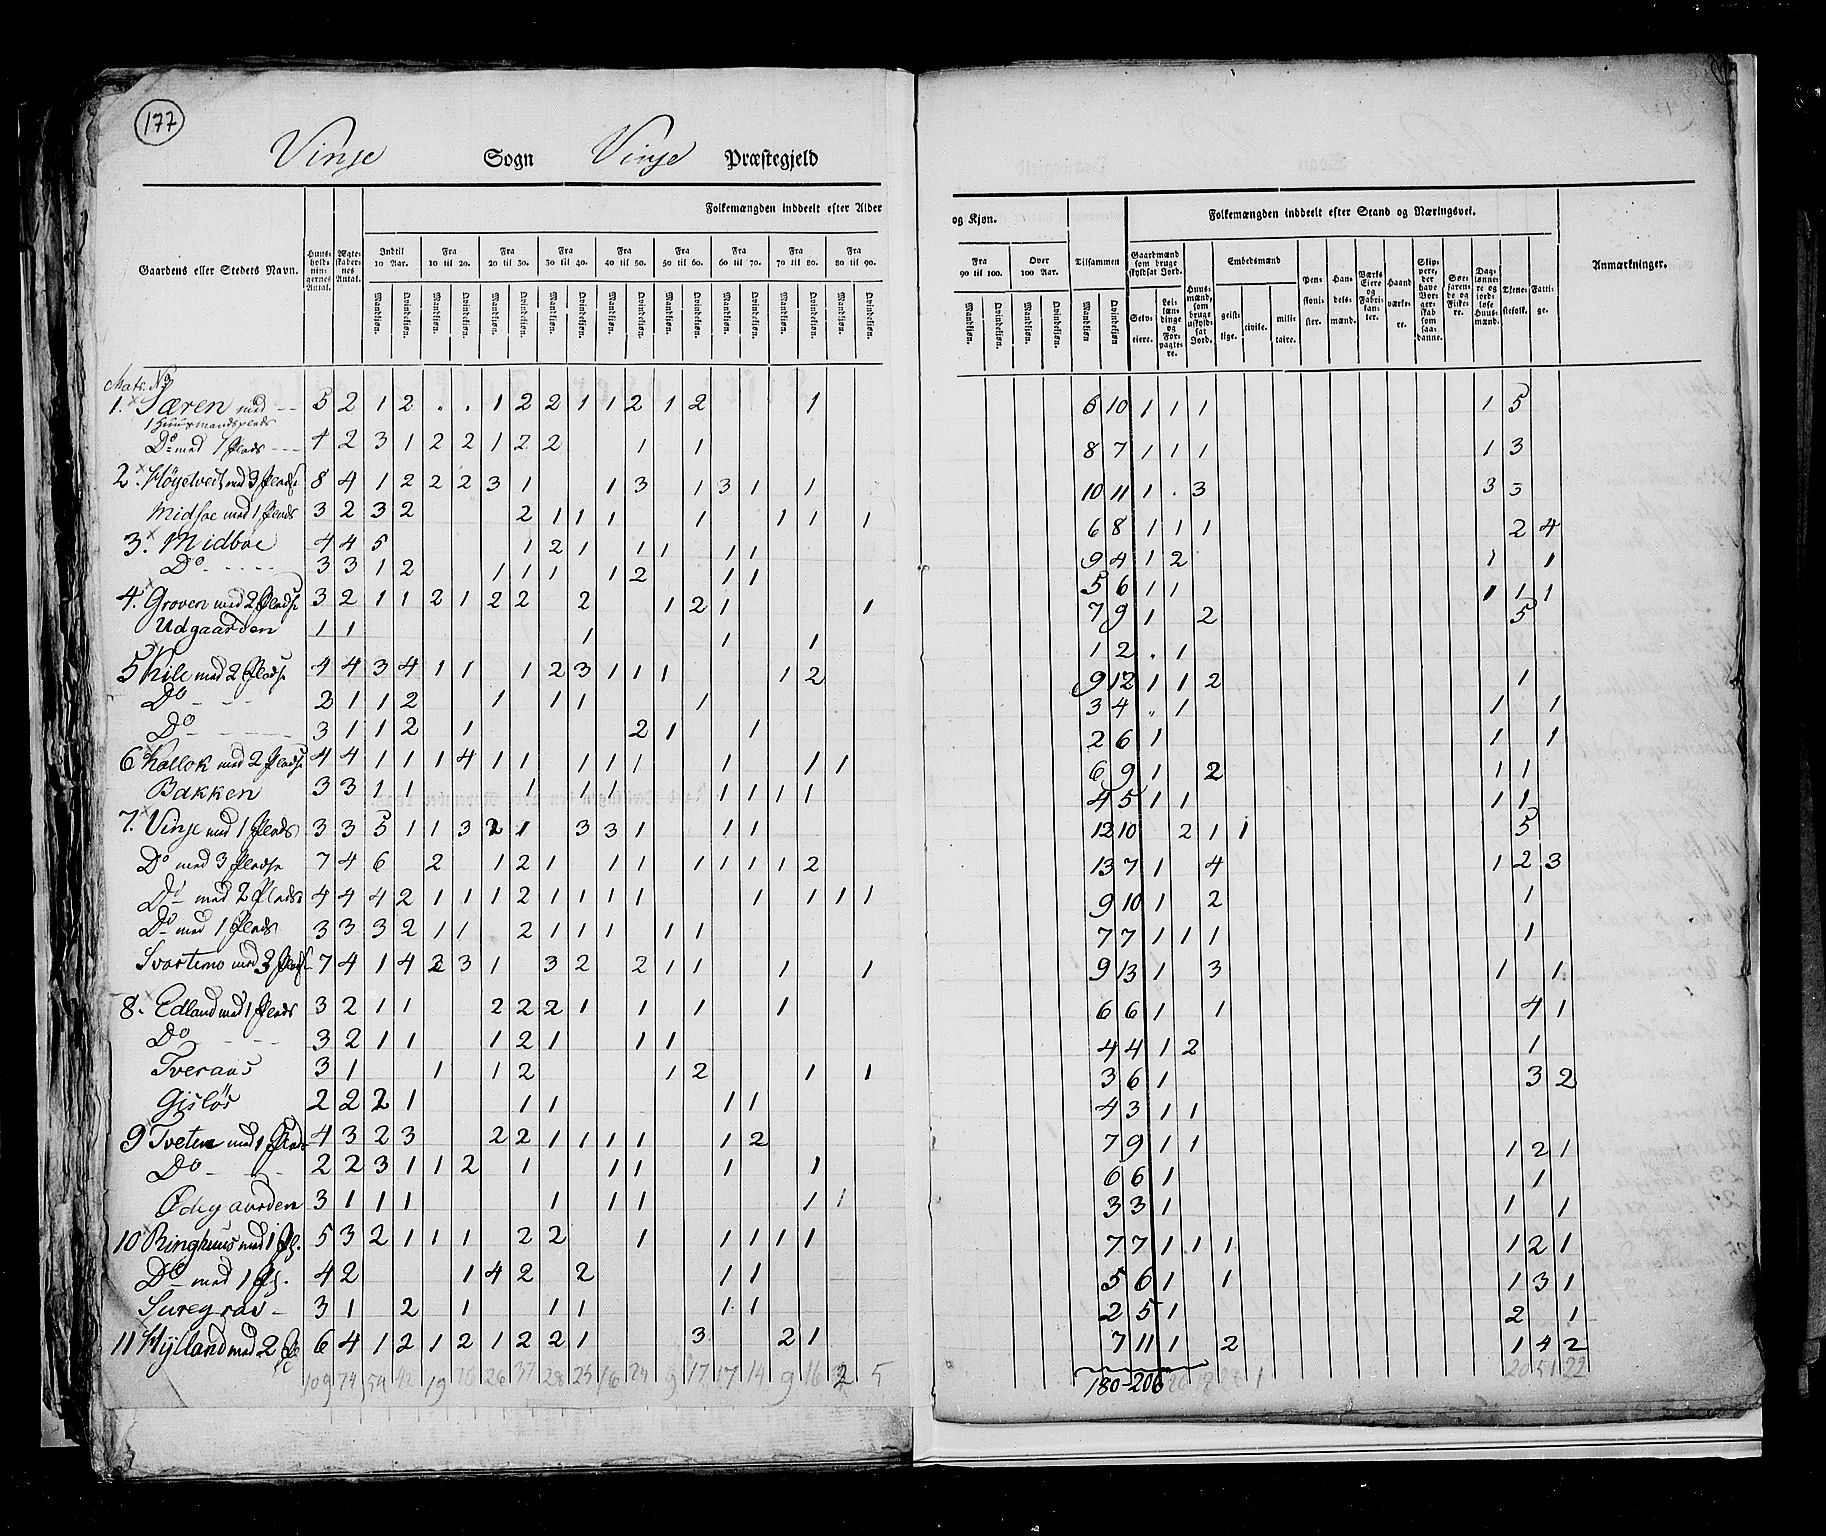 177
Vinje Sogn Vinje Præstegjeld
Gaardens eller Stedets Navn. Huus-hold-nin-gernes Antal. Ægte-skaber-nes Antal. Folkemængden inddeelt efter Alder
Indtil 10 Aar. Fra 10 til 20. Fra 20 til 30. Fra 30 til 40. Fra 40 til 50. Fra 50 til 60. Fra 60 til 70. Fra 70 til 80. Fra 80 til 90.
Mandkiøn. Qvindekiøn. Mandkiøn. Qvindekiøn. Mandkiøn. Qvindekiøn. Mandkiøn. Qvindekiøn. Mandkiøn. Qvindekiøn. Mandkiøn. Qvindekiøn. Mandkiøn. Qvindekiøn. Mandkiøn. Qvindekiøn. Mandkiøn. Qvindekiøn.
og Kjøn. Tilsammen Folkemængden inddeelt efter Stand og Næringsvei. Anmærkninger.
Fra 90 til 100. Over 100 Aar. Gaardmænd som bruge skyldsat Jord. Huus-mænd, som bruge uskyld-sat Jord. Embedsmænd Pen-sioni-ster. Han-dels-mænd. Værks Eiere og Fabri-kan-ter. Haand værke-re. Skip-pere, der have Bor-ger-skab som saa-danne. Søe-farende og Fiske-re. Dag-lønne-re og jord-løse Huus-mænd. Tjene-stefolk. Fatti-ge.
Mandkiøn. Qvindekiøn. Mandkiøn. Qvindekiøn. Mandkiøn Qvindekiøn Selv-eiere. Lei-læn-dinge og For-pagte-re. geist-lige. civile. mili-taire.
Matr. No
1. Særen med -- 5 2 1 2 . . 1 2 2 1 1 2 1 2 1 6 10 1 1 1 1 5
1 Huusmandsplads
Do med 1 Plads --- 4 2 3 1 2 2 1 2 2 1 1 8 7 1 1 1 1 3
2. Høgetveit med 3 Pladse 8 4 1 2 2 2 3 1 1 3 1 3 1 1 10 11 1 . 3 3 3
Midsoe med 1 Plads 3 2 3 2 2 1 1 1 1 1 1 1 6 8 1 1 1 2 4
3. Midboe 4 4 5 1 2 1 1 1 1 1 9 4 1 2 1 1
Do ----- 3 3 1 2 1 1 1 1 2 1 1 5 6 1 1 1 1 1
4. Groven med 2 Pladse 3 2 1 1 2 1 2 2 2 1 2 1 1 7 9 1 2 5
Udgaarden 1 1 1 1 1 1 2 . 1
5 Kile med 2 Pladse 4 4 3 4 1 1 1 2 3 1 1 1 1 2 9 12 1 1 2 1
Do --- 2 1 1 2 1 1 1 1 3 4 " 1 1 1
Do ------ 3 1 1 2 1 2 1 1 2 6 1 1 1
6 Kallok med 2 Pladse 4 4 1 1 1 4 1 1 1 1 1 1 1 1 6 9 1 2 1 1
Bakken 3 3 1 1 1 1 1 1 1 1 1 4 5 1 1 1 1
7. Vinje med 1 Plads 3 3 5 1 1 3 2 1 3 3 1 1 1 12 10 2 1 1 5
Do med 3 Pladse 7 4 6 2 1 2 1 1 1 1 1 1 1 2 13 7 1 4 1 2 3
Do med 2 Pladse 4 4 4 2 1 1 1 2 1 1 1 1 1 1 1 1 9 10 1 2 1
Do med 1 Plads 3 3 3 2 1 1 2 1 1 1 1 1 7 7 1 1 1 1
Svartemo med 3 Pladse 7 4 1 4 2 3 1 3 2 2 1 1 1 1 9 13 1 3 1 1
8. Edland med 1 Plads 3 2 1 1 2 2 2 1 1 1 1 6 6 1 1 4 1
Do --- 3 2 1 1 1 2 1 1 1 4 4 1 2 1
Tveraas 3 1 1 1 2 1 2 1 1 3 6 1 3 2
Gisløs 2 2 2 1 1 1 1 1 4 3 1 1
9 Tveten med 1 Plads 4 3 2 3 2 2 1 1 1 1 1 2 7 9 1 1 1 2 1
Do - - 2 2 3 1 1 2 1 1 1 1 1 6 6 1 1
Ødegaarden 3 1 1 1 1 1 1 1 1 3 3 1 1 1
10 Ringhuus med 1 Pl. 5 3 2 1 1 1 2 2 1 1 1 1 1 7 7 1 1 1 1 2 1
Do med 1 Pl. 4 2 1 4 2 2 1 1 5 6 1 1 1 3 1
Suregrav - 3 1 2 1 1 1 1 1 2 5 1 2 1
11 Hylland med 2 Pl 6 4 1 2 1 2 1 2 2 1 3 2 1 7 11 1 2 1 4 2
109 74 54 42 19 26 26 37 28 25 16 24 9 17 17 14 9 16 2 5 180-206 26 18 1 20 51 22